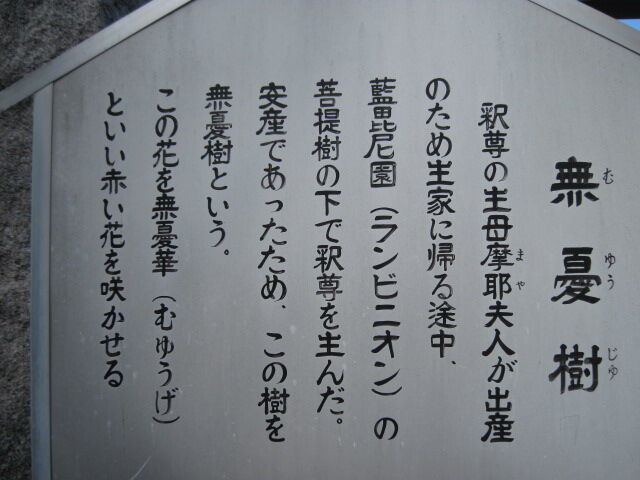 無憂樹
むゆうじゅ
釈尊の生母摩耶夫人が出産
まや
のため生家に帰る途中、
藍毘尼園（ランビニオン）の
菩提樹の下で釈尊を生んだ。
安産であったため、この樹を
無憂樹という。
この花を無憂華（むゆうげ）
といい赤い花を咲かせる